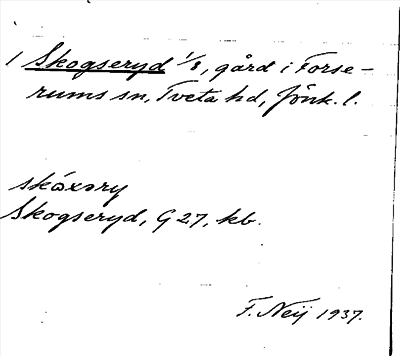 1 Skogseryd 1/8, gård i Forse-
rums sn, Tveta hd, Jönk. l.
skɷxəry
Skogseryd, G 27, kb.
F. Neij 1937.